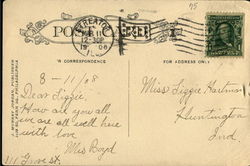 75
STREATOR
AUG 11
12-30
1908
ILL.
POST CARD
CORRESPONDENCE
FOR ADDRESS ONLY
8-11/08
Dear Lizzie:
How are you all
we are all well here
with love
Miss Boyd
111 Grove st.
Miss Lizzie Hartman
Huntington
Ind